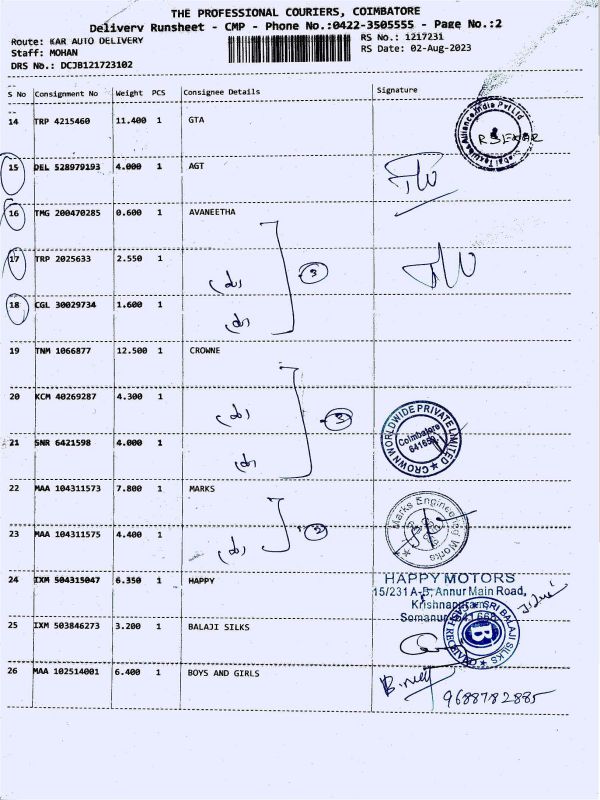 THE PROFESSIONAL COURIERS, COIMBATORE
Delivery Runsheet - CMP - Phone No.:0422-3505555 - Page No.:2
Route: KAR AUTO DELIVERY
RS No.: 1217231
Staff: MOHAN
RS Date: 02-Aug-2023
DRS No.: DCJB121723102
S No Consignment No Weight PCS Consignee Details Signature
14 TRP 4215460 11.400 1 GTA
15 DEL 528979193 4.000 1 AGT
16 TMG 200470285 0.600 1 AVANEETHA
17 TRP 2025633 2.550 1
3
18 CGL 30029734 1.600 1
19 TNM 1066877 12.500 1 CROWNE
20 KCM 40269287 4.300 1
3
CROWN WORLDWIDE PRIVATE LIMITED
Coimbatore
21 SNR 6421598 4.000 1
22 MAA 104311573 7.800 1 MARKS
Marks Engineering Works
23 MAA 104311575 4.400 1
2
24 IXM 504315047 6.350 1 HAPPY
HAPPY MOTORS
15/231 A-B, Annur Main Road,
25 IXM 503846273 3.200 1 BALAJI SILKS
SRI BALAJI SILKS
B
26 MAA 102514001 6.400 1 BOYS AND GIRLS
9688782885